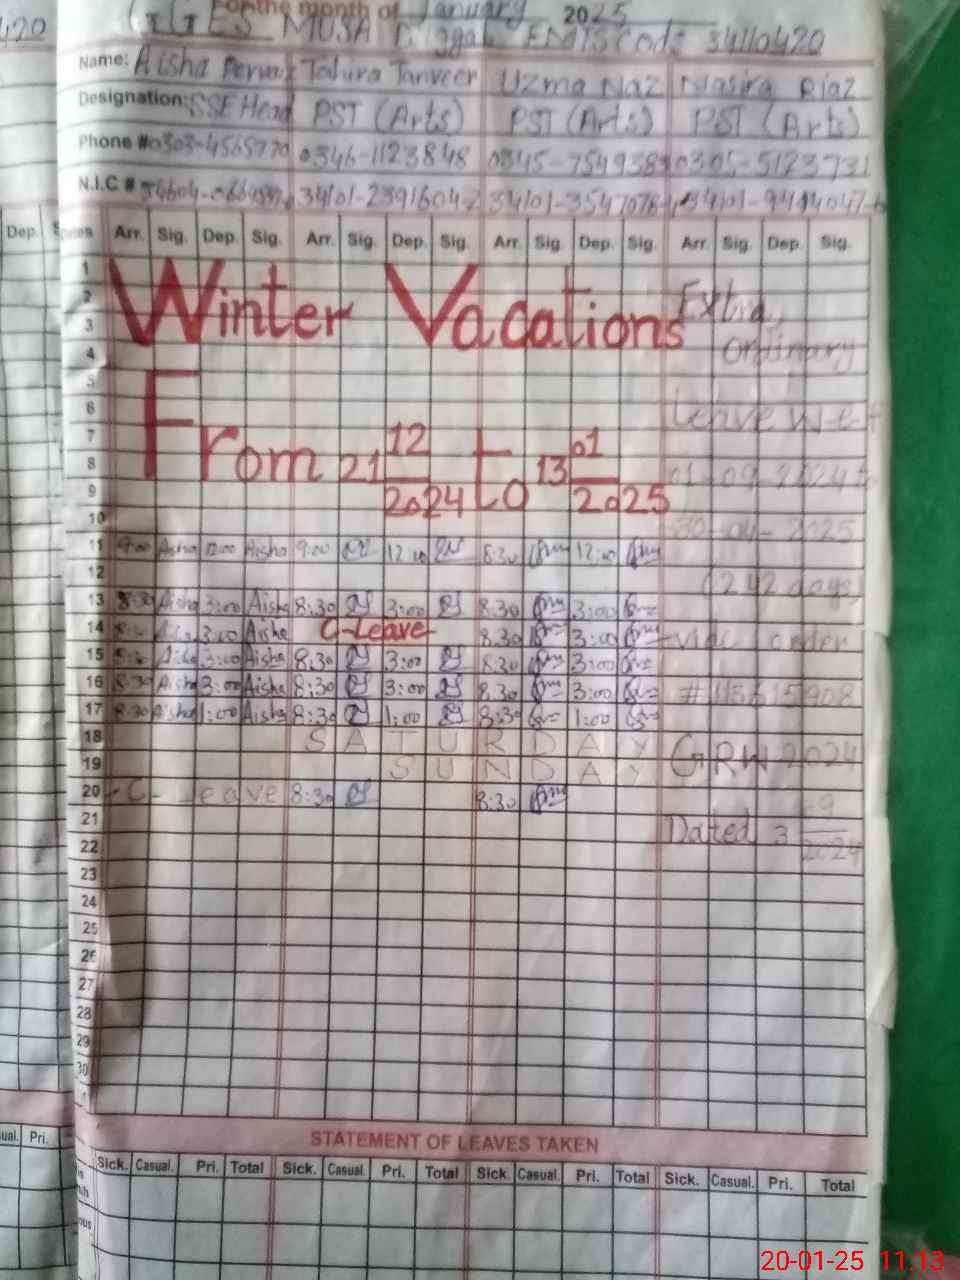 420
For the month of January 2025
GGES MUSA Duggal EMIS Code 34110420
Name: Aisha Pervaiz Tahira Tanveer Uzma Naz Nasira Riaz
Designation: SSE Head PST (Arts) PST (Arts) PST (Arts)
Phone # 0303-4565770 0346-1123848 0345-7549383 0305-5123731
N.I.C # 34101-2391604-2 34101-3547078-
Dep. Arr. Sig. Dep. Sig. Arr. Sig. Dep. Sig. Arr. Sig. Dep. Sig. Arr. Sig. Dep. Sig.
1
2 Winter Vacations Extra
3
4 Ordinary
5
6 Leave w.e.f
7
8 From 21 12 2024 to 13 01 2025 01-09-2024 to
9
10 30-04-2025
11 9:00 Aisha 12:00 Aisha 9:00 12:00 8:30 12:00
12 (242 days)
13 8:30 Aisha 3:00 Aisha 8:30 3:00 8:30 3:00
14 3:00 Aisha C-Leave 8:30 3:00 vide order
15 3:00 Aisha 8:30 3:00 8:30 3:00
16 8:30 Aisha 3:00 Aisha 8:30 3:00 8:30 3:00 #
17 8:30 Aisha 1:00 Aisha 8:30 1:00 8:30 1:00
18 SATURDAY GRW 2024
19 SUNDAY
20 C-Leave 8:30 8:30
21 Dated 3 9 2024
22
23
24
25
26
27
28
29
30
STATEMENT OF LEAVES TAKEN
Pri. Sick. Casual. Pri. Total Sick. Casual. Pri. Total Sick. Casual. Pri. Total Sick. Casual. Pri. Total
20-01-25 11:13